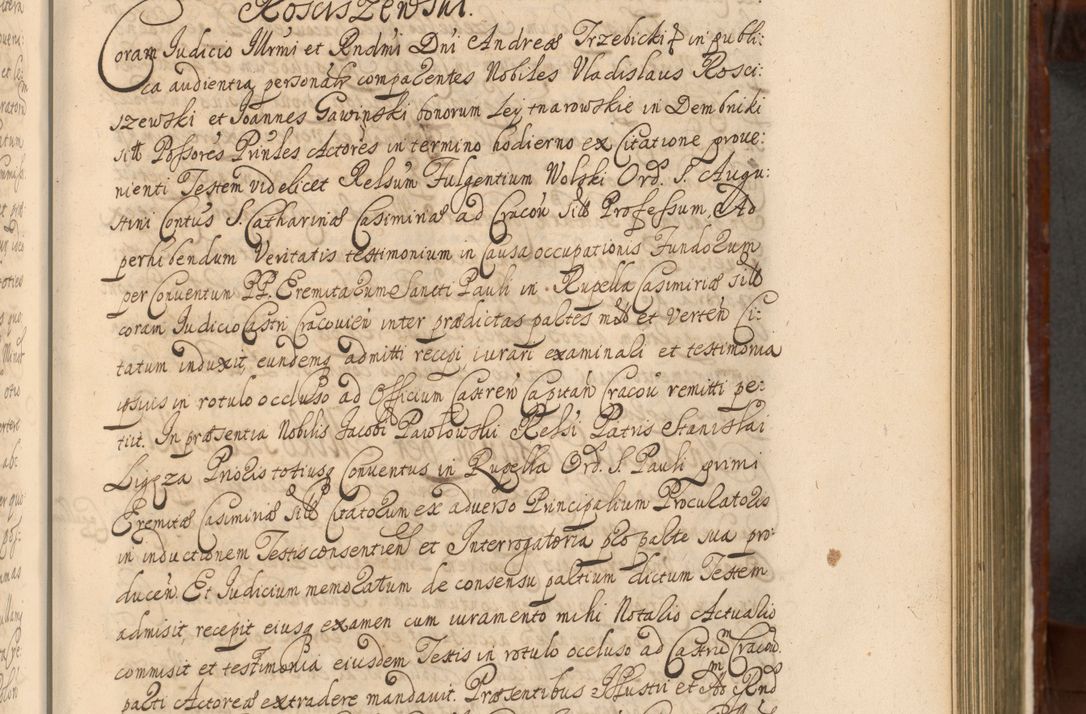 Rosciszewski.
Coram Judicio Illrmi et Rndmi Dni Andreæ Trzebicki &c in publi:
ca audientia personalr compaɾentes Nobiles Vladislaus Rosci:
szewski et Joannes Gawinski bonorum Ley tnarowskie in Dembniki
sitt Possores Prinles Actores in termino hodierno ex Citatione prove:
nienti Testem videlicet Relsum Fulgentium Wolski Ord. S. Augu:
stini Contus S. Catharinæ Casimiriæ ad Cracou sitt Professum, Ad
perhibendum Veritatis testimonium in Causa occupationis Fundorum
per Conventum PP. Eremitarum Sancti Pauli in Rupella Casimiriæ sitt
coram Judicio Castri Cracovien inter prædictas partes mtt et verten Ci:
tatum induxit, eundemq admitti recipi iurari examinari et testimonia
ipsius in rotulo occluso ad Officium Castren Capitan Cracou remitti pe:
tiit. In præsentia Nobilis Jacobi Pawlowski Relsi Patris Stanislai
Ligęza Prioris totiusq Conventus in Rupella Ord. S. Pauli primi
Eremitæ Casimiriæ sitt Citatorum ex adverso Principalium Procuratoris
in inductionem Testis consentien et Interrogatoria pro parte sua pro:
ducen. Et Judicium memoratum de consensu partium dictum Testem
admisit recepit eiusq examen cum iuramento mihi Notario Actuario
commisit et testimonia eiusdem Testis in rotulo occluso ad Castrum Cracou.
parti Actoreæ extradere mandavit. Præsentibus Illustri et Rnd